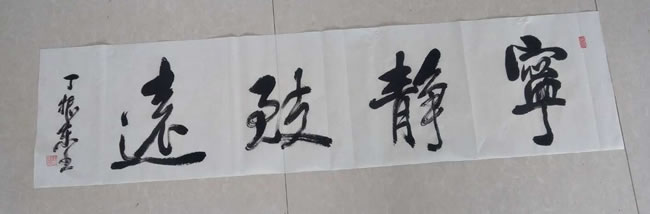 寧靜致遠
丁根東書